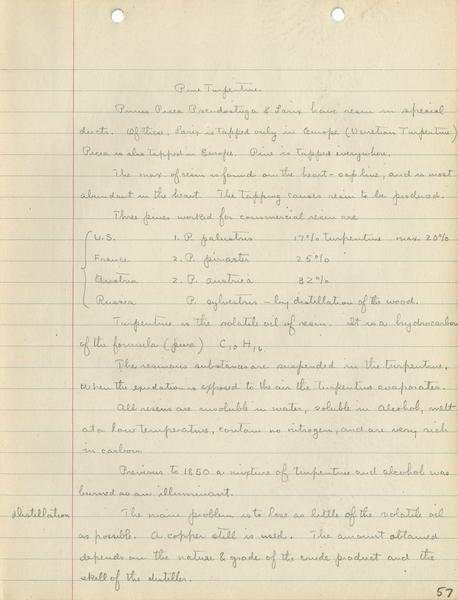 Pine Turpentine.
Pinus Picea Pseudostuga & Larix have resin in special
ducts. Of these, Larix is tapped only in Europe (Venetian Turpentine)
Picea is also tapped in Europe. Pine is tapped everywhere.
The max of resin is found on the heart-sap line, and is most
abundant in the heart. The tapping causes resin to be produced.
Three pines worked for commercial resin are
U.S. 1. P. palustris 17% turpentine max 20%
France 2. P. pinaster 25%
Austria 2. P. austriă 32%
Russia P. sylvestris - by distillation of the wood.
Turpentine is the volatile oil of resin. It is a hydrocarbon
of the formula (pure) C10 H16.
The resinous substances are suspended in the turpentine,
when the exudation is exposed to the air the turpentine evaporates.
All resins are insoluble in water, soluble in alcohol, melt
at a low temperature, contain no nitrogen, and are very rich
in carbon
Previous to 1850 a mixture of turpentine and alcohol was
burned as an illuminant.
Distillation The main problem is to lose as little of the volatile oil
as possible. A copper still is used. The amount obtained
depends on the nature & grade of the crude product and the
skill of the distiller.
57